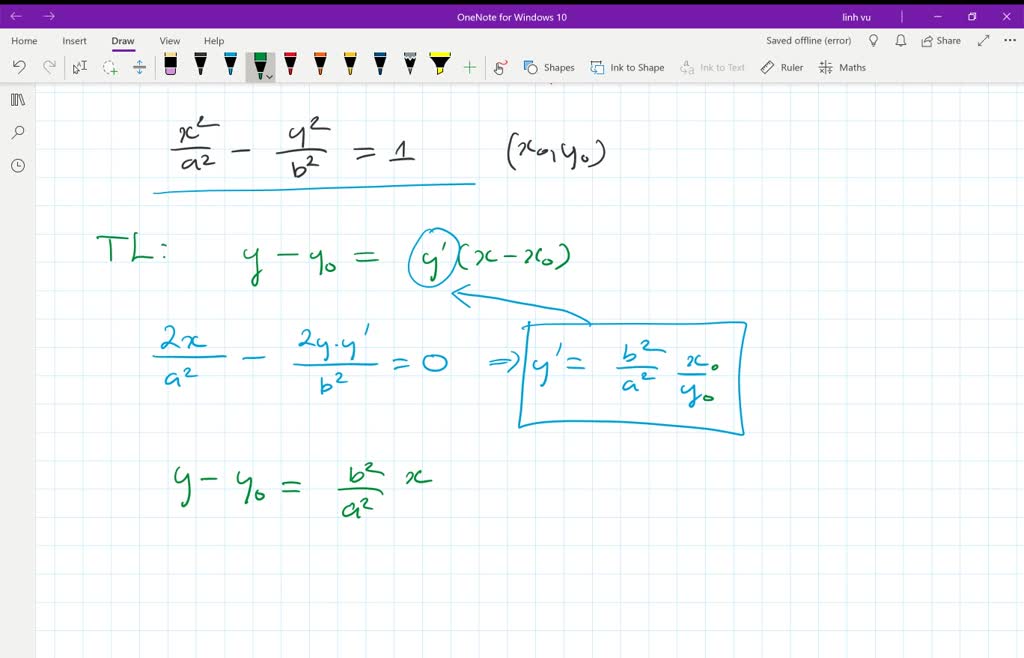 OneNote for Windows 10
linh vu
Home Insert Draw View Help
Saved offline (error) Share
Shapes Ink to Shape Ink to Text Ruler Maths
x²/a² - y²/b² = 1 (x₀, y₀)
TL: y - y₀ = y'(x - x₀)
2x/a² - 2y.y'/b² = 0 ⇒ y' = b²/a² x₀/y₀
y - y₀ = b²/a² x